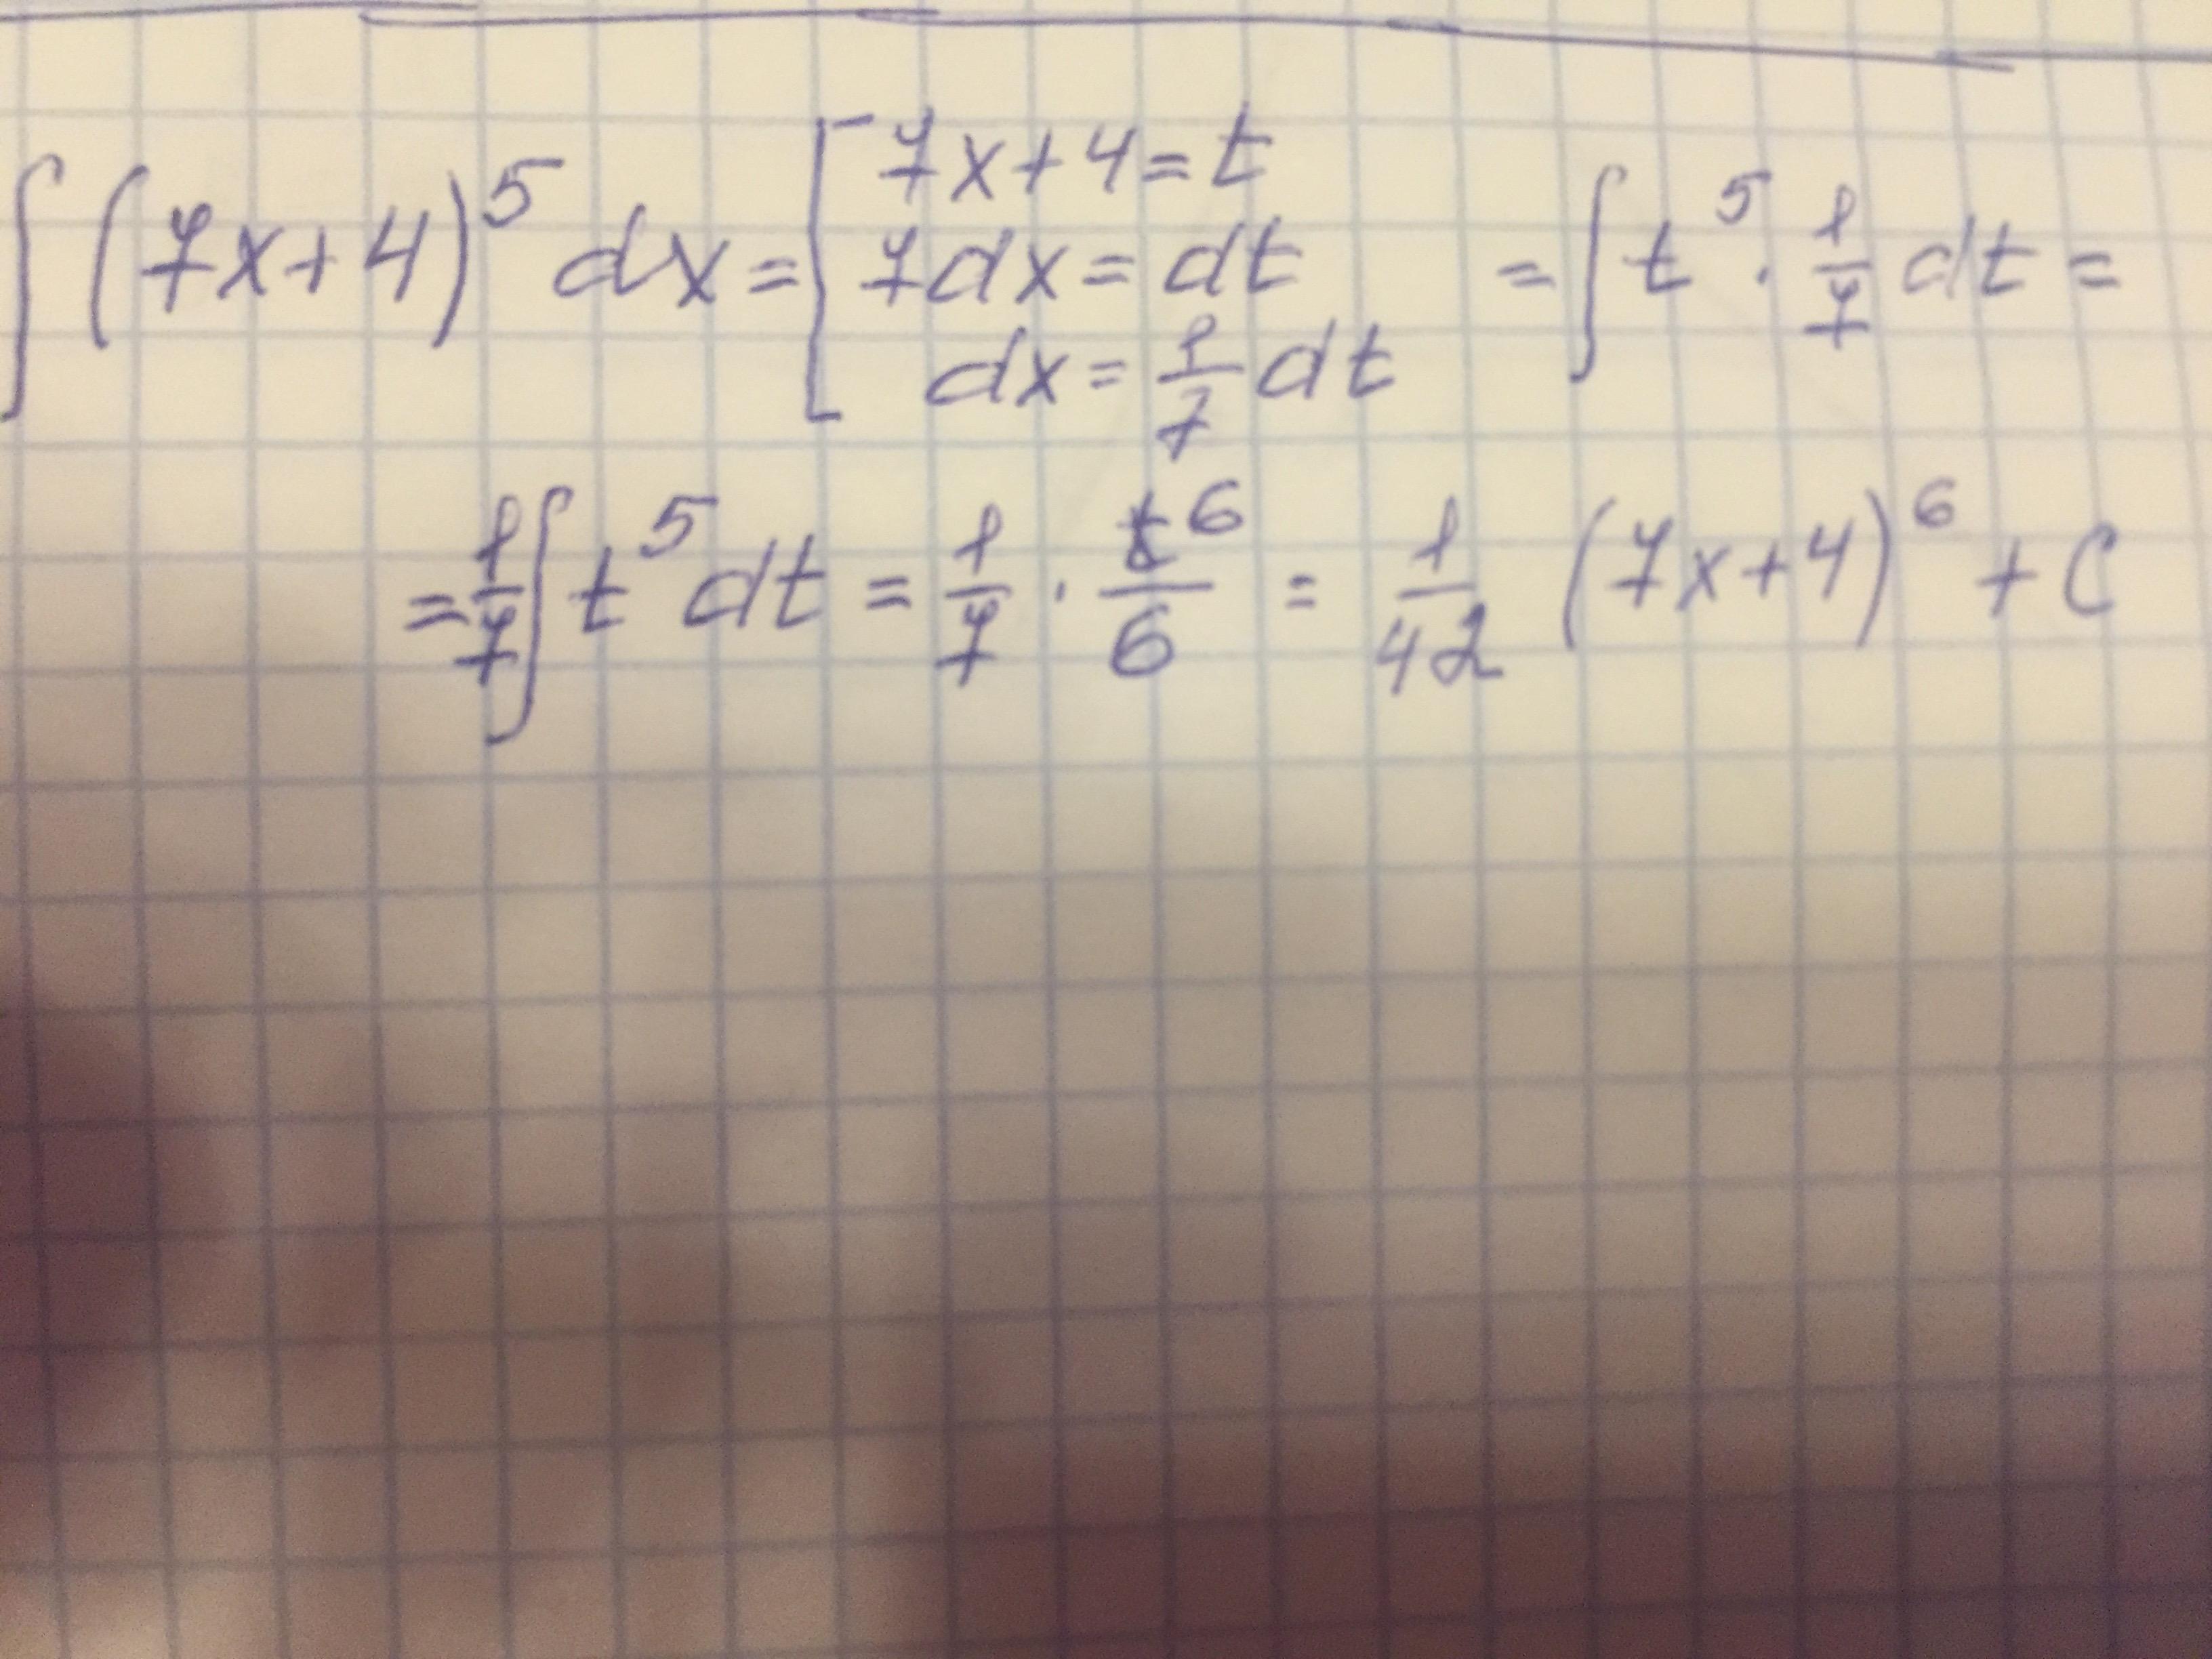 ∫(7x+4)⁵dx = [7x+4=t
7dx=dt
dx=1/7 dt = ∫t⁵·1/7 dt =
=1/7∫t⁵dt = 1/7·t⁶/6 = 1/42 (7x+4)⁶+C